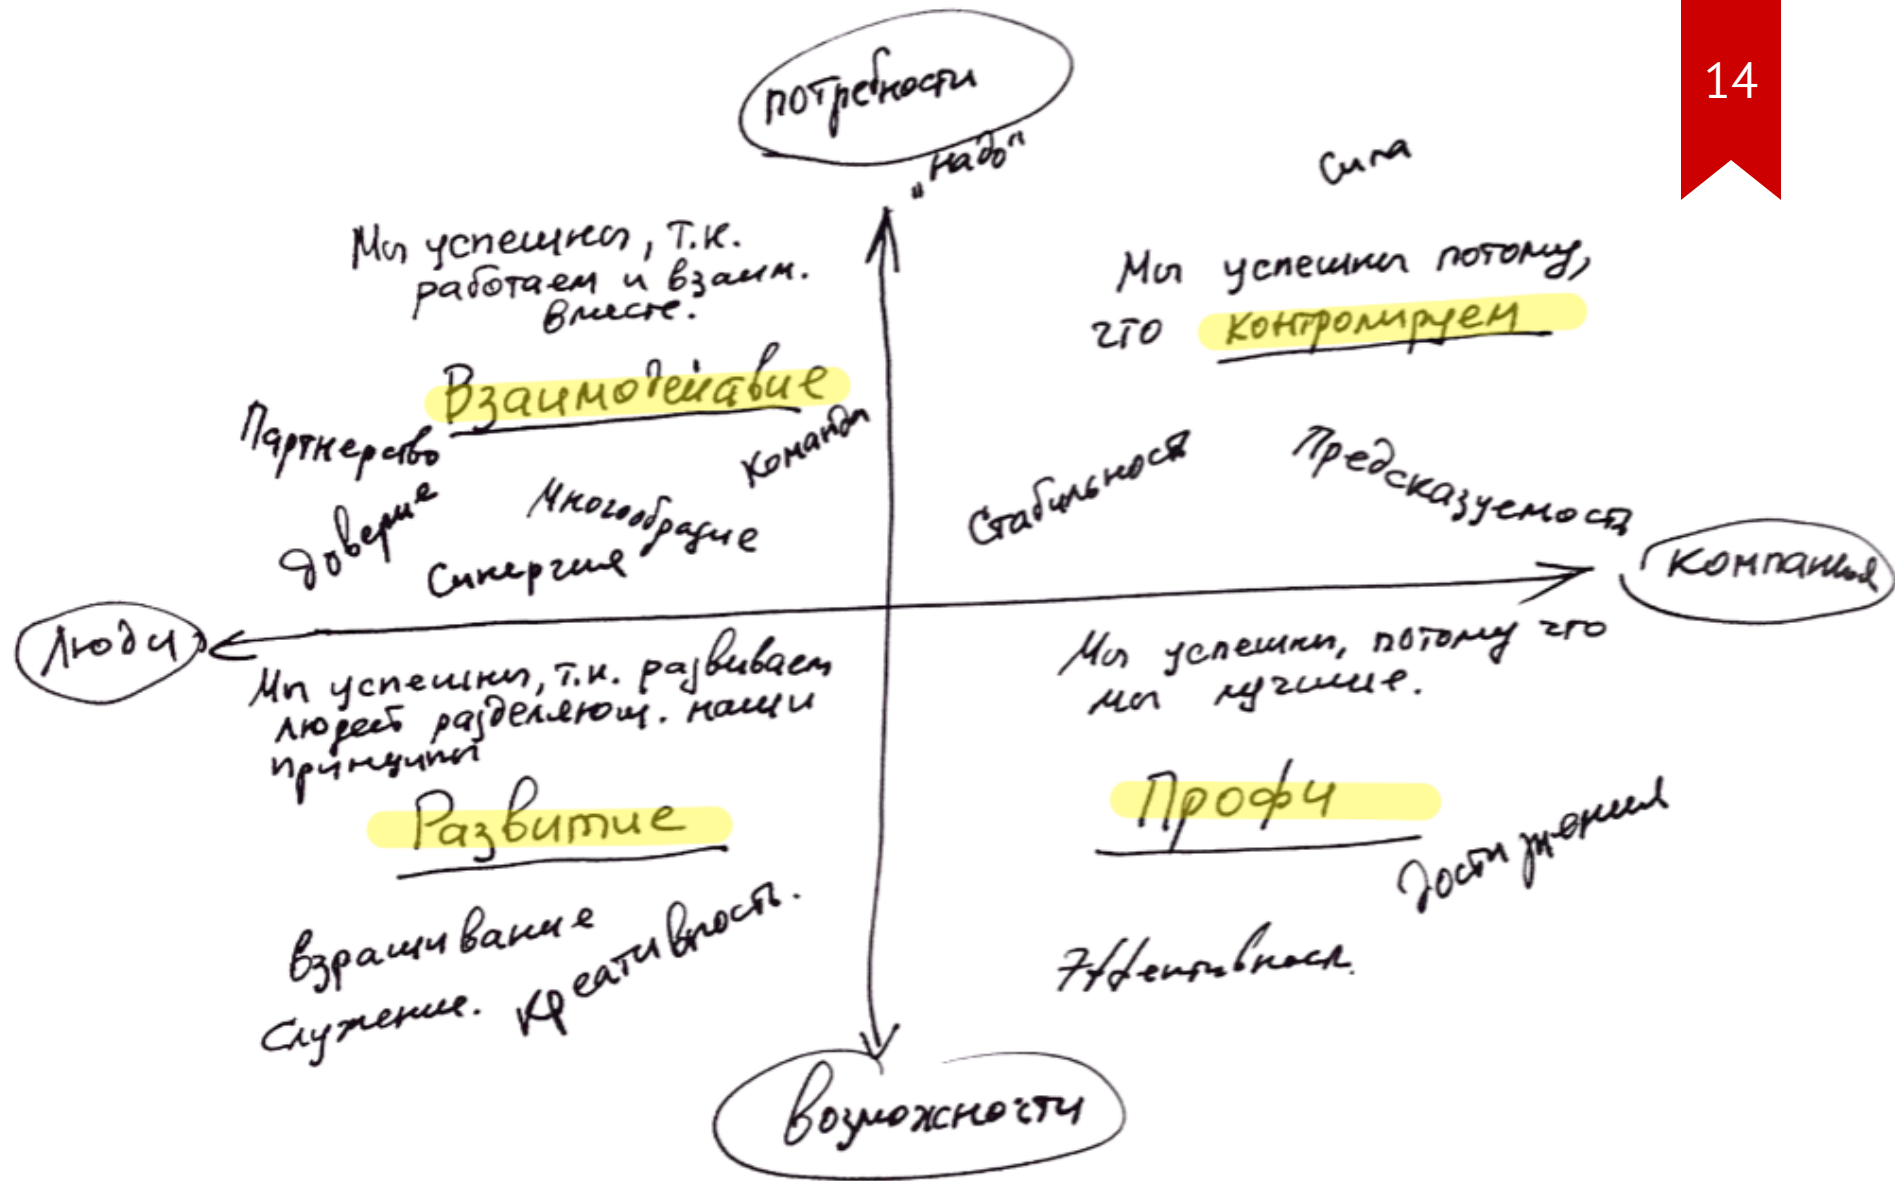 14
потребности
„надо“
Сила
Мы успешны, т.к.
работаем и взаим.
вместе.
Взаимодействие
Партнерство
Команда
доверие
Многообразие
Синергия
Мы успешны потому,
что контролируем
Стабильность
Предсказуемость
Люди
Компания
Мы успешны, т.к. развиваем
людей разделяющ. наши
принципы
Развитие
взращивание
Служение.
креативность.
Мы успешны, потому что
мы лучшие.
Профи
Достижения
Эффективность.
возможности